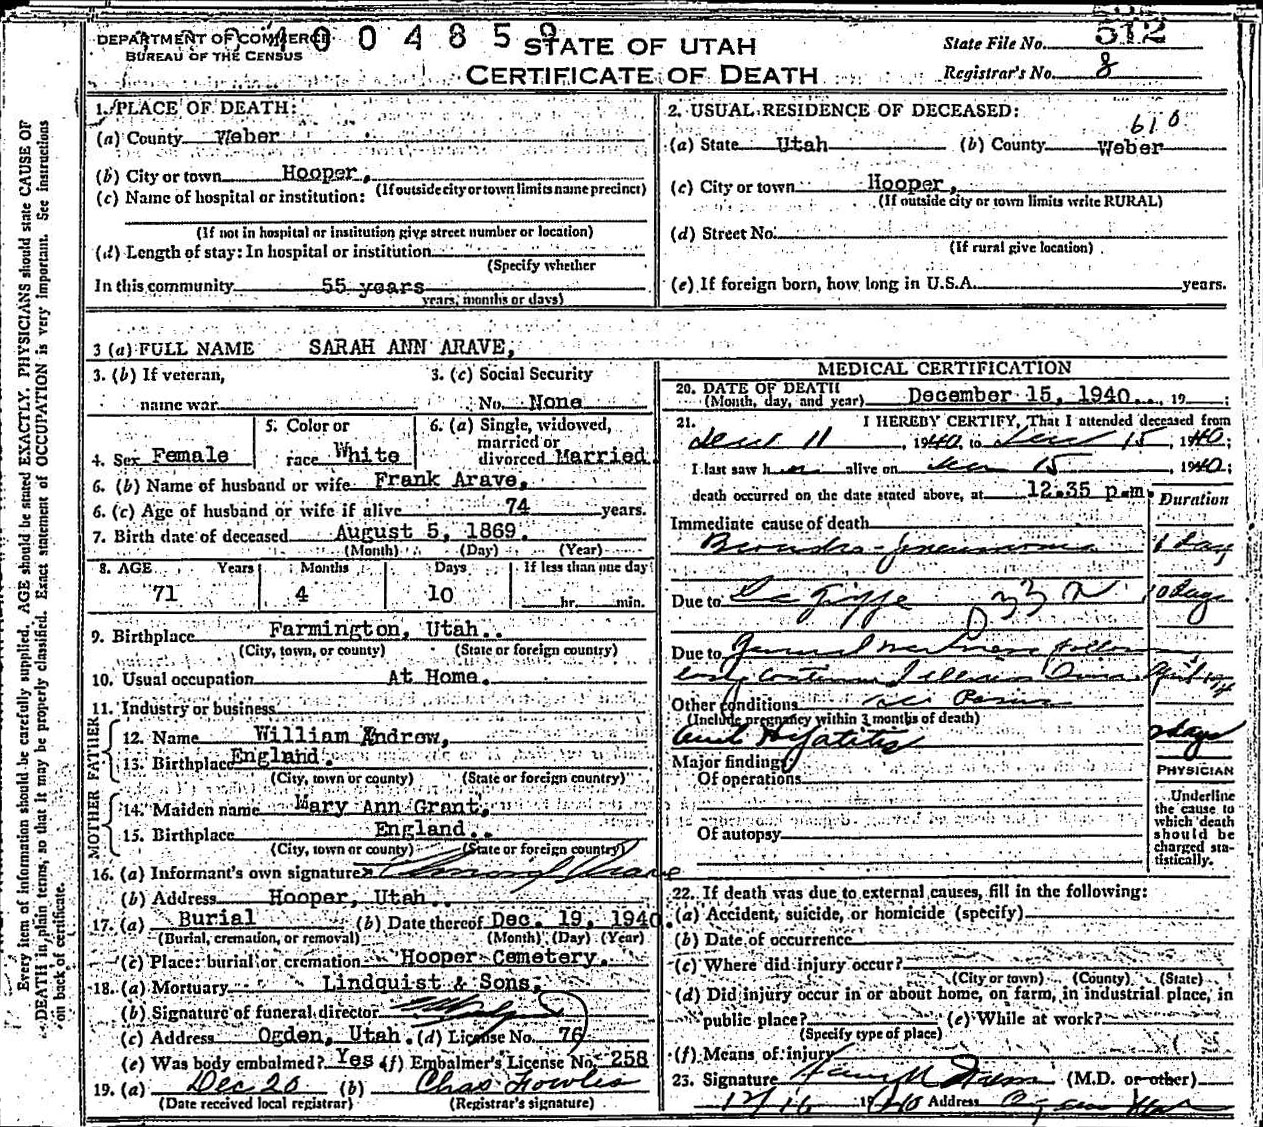 DEPARTMENT OF COMMERCE
BUREAU OF THE CENSUS
004859
STATE OF UTAH
CERTIFICATE OF DEATH
State File No. 512
Registrar's No. 8
Every item of information should be carefully supplied. AGE should be stated EXACTLY. PHYSICIANS should state CAUSE OF
DEATH in plain terms, so that it may be properly classified. Exact statement of OCCUPATION is very important. See instructions
on back of certificate.
1. PLACE OF DEATH:
(a) County Weber
(b) City or town Hooper,
(If outside city or town limits name precinct)
(c) Name of hospital or institution:
(If not in hospital or institution give street number or location)
(d) Length of stay: In hospital or institution
(Specify whether
In this community 55 years
years, months or days)
2. USUAL RESIDENCE OF DECEASED:
610
(a) State Utah (b) County Weber
(c) City or town Hooper,
(If outside city or town limits write RURAL)
(d) Street No.
(If rural give location)
(e) If foreign born, how long in U.S.A. years.
3 (a) FULL NAME SARAH ANN ARAVE,
3. (b) If veteran, 3. (c) Social Security
name war No. None
4. Sex Female
5. Color or
race White
6. (a) Single, widowed,
married or
divorced Married
6. (b) Name of husband or wife Frank Arave,
6. (c) Age of husband or wife if alive 74 years.
7. Birth date of deceased August 5, 1869.
(Month) (Day) (Year)
8. AGE Years Months Days If less than one day
71 4 10 hr. min.
9. Birthplace Farmington, Utah..
(City, town, or county) (State or foreign country)
10. Usual occupation At Home.
11. Industry or business
FATHER
12. Name William Andrew,
13. Birthplace England.
(City, town or county) (State or foreign country)
MOTHER
14. Maiden name Mary Ann Grant,
15. Birthplace England..
(City, town or county) (State or foreign country)
16. (a) Informant's own signature Arave
(b) Address Hooper, Utah.
17. (a) Burial (b) Date thereof Dec. 19, 1940.
(Burial, cremation, or removal) (Month) (Day) (Year)
(c) Place: burial or cremation Hooper Cemetery.
18. (a) Mortuary Lindquist & Sons,
(b) Signature of funeral director
(c) Address Ogden, Utah. (d) License No. 76
(e) Was body embalmed? Yes (f) Embalmer's License No. 258
19. (a) Dec 20 (b) Chas Fowles
(Date received local registrar) (Registrar's signature)
MEDICAL CERTIFICATION
20. DATE OF DEATH
(Month, day, and year) December 15, 1940. , 19 ;
21. I HEREBY CERTIFY, That I attended deceased from
11 , 1940, to 15 , 1940;
I last saw her alive on 15 , 1940;
death occurred on the date stated above, at 12:35 p.m. Duration
Immediate cause of death
Broncho-pneumonia 1 day
Due to La Grippe 10 days
33 a
Due to General weakness
Other conditions
(Include pregnancy within 3 months of death)
Hepatitis days
Major findings:
Of operations
Of autopsy
PHYSICIAN
Underline
the cause to
which death
should be
charged sta-
tistically.
22. If death was due to external causes, fill in the following:
(a) Accident, suicide, or homicide (specify)
(b) Date of occurrence
(c) Where did injury occur?
(City or town) (County) (State)
(d) Did injury occur in or about home, on farm, in industrial place, in
public place? (e) While at work?
(Specify type of place)
(f) Means of injury
23. Signature (M.D. or other)
12/16 1940 Address Ogden Utah